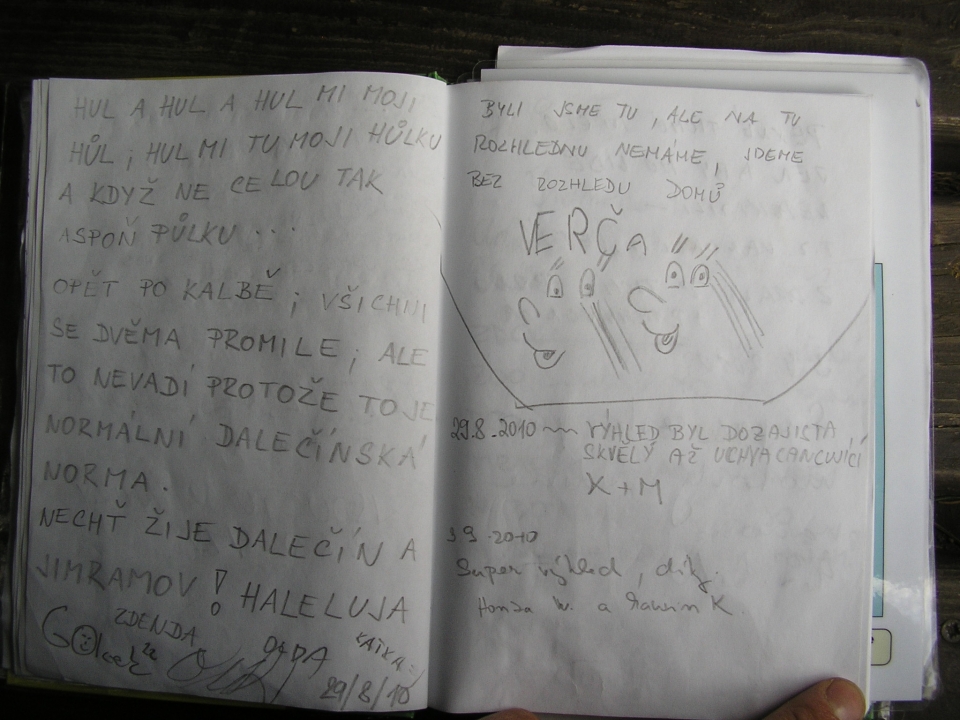 HUL A HUL A HUL MI MOJI
HŮL, HUL MI TU MOJI HŮLKU
A KDYŽ NE CELOU TAK
ASPOŇ PŮLKU ...
OPĚT PO KALBĚ, VŠICHNI
SE DVĚMA PROMILE, ALE
TO NEVADÍ PROTOŽE TO JE
NORMÁLNÍ DALEČÍNSKÁ
NORMA.
NECHŤ ŽIJE DALEČÍN A
JIMRAMOV! HALELUJA
ZDENDA
KAŤKA
29/8/10
BYLI JSME TU, ALE NA TU
ROZHLEDNU NEMÁME, JDEME
BEZ ROZHLEDU DOMŮ
VERČA
29.8.2010 ~ VÝHLED BYL DOZAJISTA
SKVĚLÝ AŽ UCHVACANCUJÍCÍ
K+M
3 9 .2010
Super výhled, díky.
Honza W. a K.